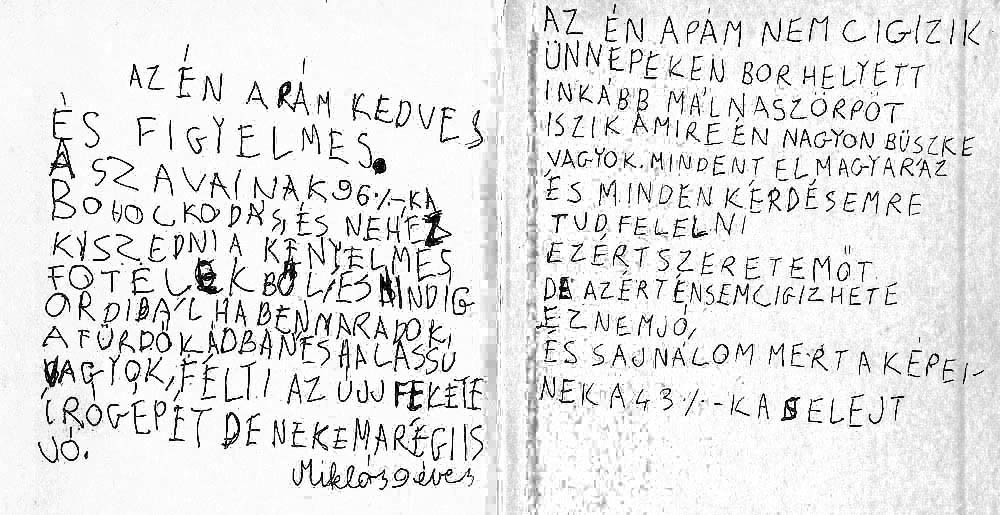 AZ ÉN APÁM KEDVES
ÉS FIGYELMES.
A SZAVAINAK 96%-KA
BOHOCKODÁS, ÉS NEHEZ
KISZEDNI A KÉNYELMES
FOTELEKBŐL, ÉS MINDIG
ORDIBÁL HA BENNMARADOK,
A FÜRDŐKÁDBAN ÉS HA LASSÚ
VAGYOK, FÉLTI AZ ÚJJ FEKETE
ÍRÓGÉPÉT DE NEKEM A RÉGI IS
JÓ.
Miklós 9 éves
AZ ÉN APÁM NEM CIGIZIK
ÜNNEPEKEN BOR HELYETT
INKÁBB MÁLNASZÖRPÖT
ISZIK AMIRE ÉN NAGYON BÜSZKE
VAGYOK. MINDENT ELMAGYARÁZ
ÉS MINDEN KÉRDÉSEMRE
TUD FELELNI
EZÉRT SZERETEM ŐT.
DE AZÉRT ÉN SEM CIGIZHETE
EZ NEM JÓ,
ÉS SAJNÁLOM MERT A KÉPEI-
NEK A 43%-KA SELEJT